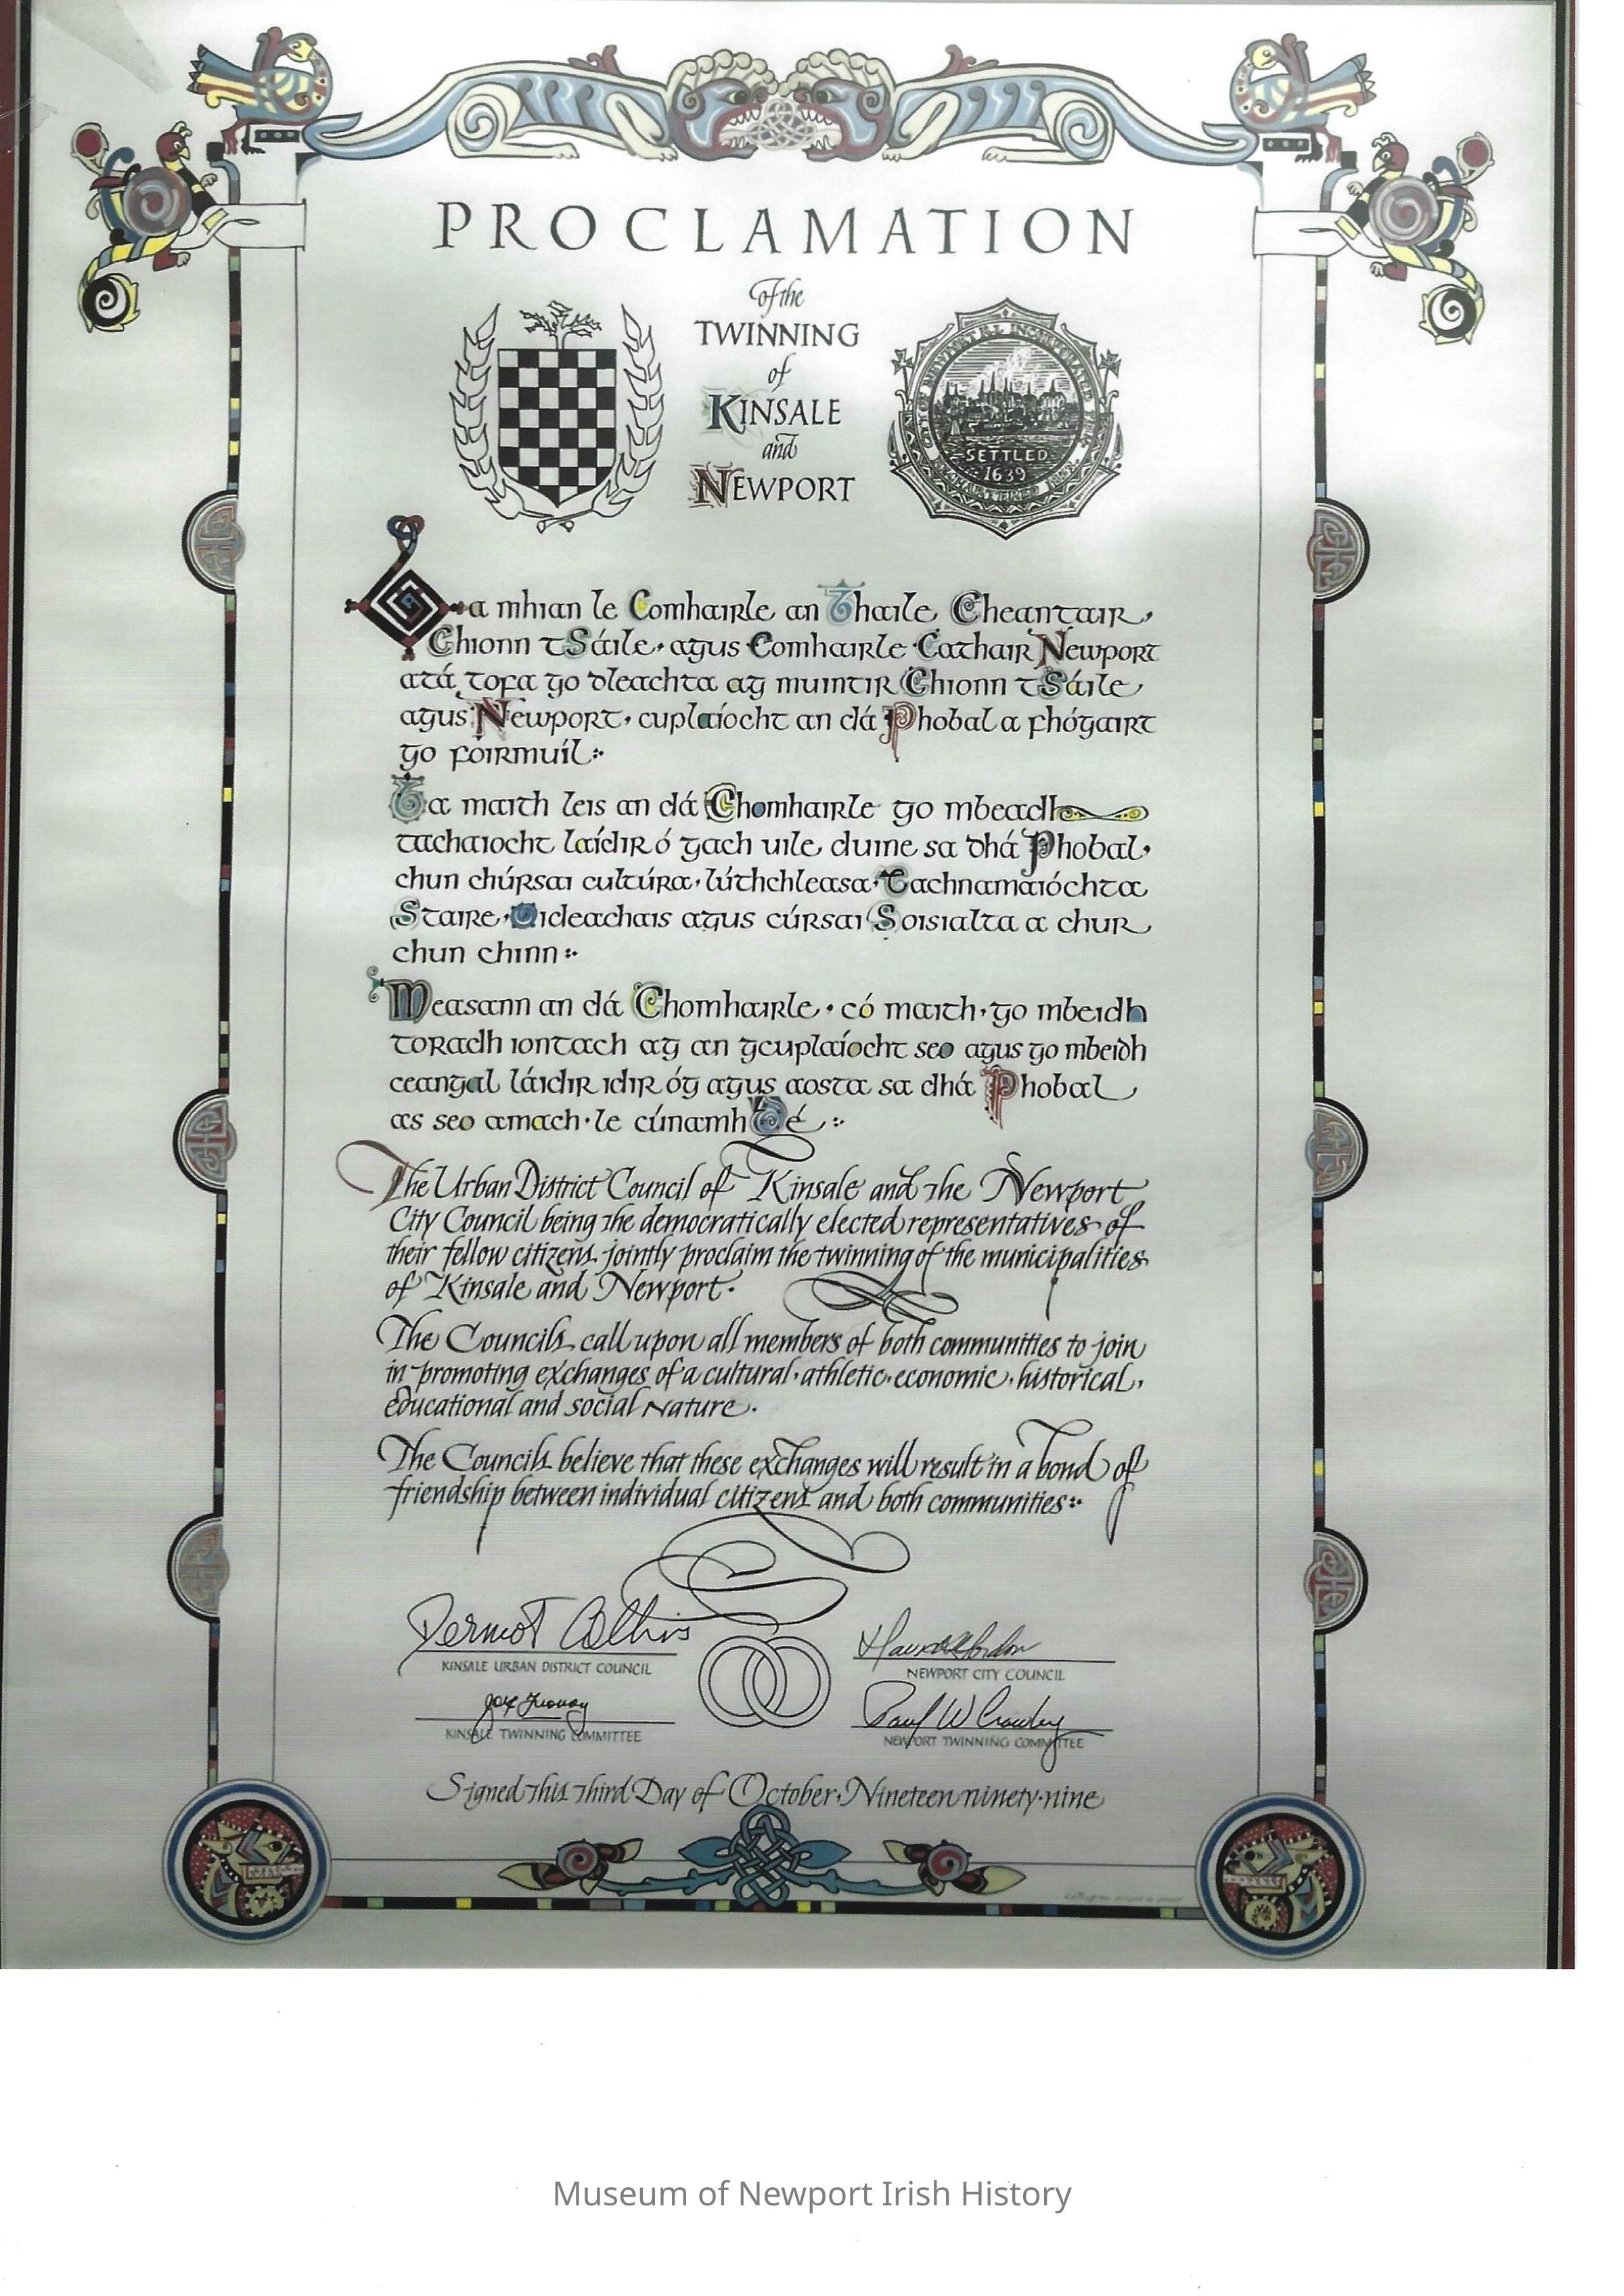 PROCLAMATION
Of the
TWINNING
of
KINSALE
and
NEWPORT
SETTLED
1639
a mhian le Comhairle an Bhaile Cheantair,
Chionn tSáile, agus Comhairle Cathair Newport
atá tofa go dleachta ag muintir Chionn tSáile
agus Newport, cuplaíocht an dá Phobal a fhógairt
go fóirmuíl:
Ba maith leis an dá Chomhairle go mbeadh
tachaiocht laídir ó gach uile duine sa dhá Phobal,
chun chúrsaí cultúra, lúthchleasa, Eachnamaióchta
Staire, Oideachais agus cúrsaí Soisialta a chur
chun chinn:
Measann an dá Chomhairle, có maith, go mbeidh
toradh iontach ag an gcuplaíocht seo agus go mbeidh
ceangal láidir idir óg agus aosta sa dhá Phobal
as seo amach, le cúnamh Dé:
The Urban District Council of Kinsale and the Newport
City Council being the democratically elected representatives of
their fellow citizens jointly proclaim the twinning of the municipalities
of Kinsale and Newport.
The Councils call upon all members of both communities to join
in promoting exchanges of a cultural, athletic, economic, historical,
educational and social nature.
The Councils believe that these exchanges will result in a bond of
friendship between individual citizens and both communities:
Dermot Collins
KINSALE URBAN DISTRICT COUNCIL
NEWPORT CITY COUNCIL
Paul W Crowley
KINSALE TWINNING COMMITTEE
NEWPORT TWINNING COMMITTEE
Signed this third Day of October, Nineteen ninety-nine
Museum of Newport Irish History